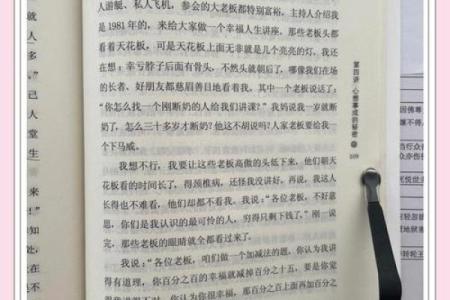 人游艇、私人飞机，参会的大老板都特别富裕，主持人介绍我
是 1981 年的，来给大家做一个幸福人生讲座，那些老板头都
看着天花板，可是天花板上面无非就是几个亮亮的灯。我还
在想：幸亏脖子后面有骨头，不然头就朝后了，哪像我们在场
的长者、好朋友都慈眉善目地看着我。其中一个老板说话了：
“你怎么找一个刚断奶的人给我们讲课？”我妈说我一岁就断
奶了，怎么三十多岁才断奶？他这不胡说吗？人家老板要给我一
个下马威。
我想不行，我要让这些老板高傲的头低下来，他们朝天
花板看的时间长了，得颈椎病，还怪我没讲好。再说，我这人
长得也不难看，他们却都不看我。我说：“各位老板，不好意
思，你们是我认识的最可怜的人，穷得只剩下钱了。”刚一说
完，那些老板的眼睛就全都看过来了。
我说：“各位老板，咱们做一个加减法的题。你认为我讲
得有道理，你百分之百的幸福就减掉百分之十五，要是你觉
第四讲 心想事成的秘密
109
就
人
多
。”
己
人
堂
生
知
处，
在